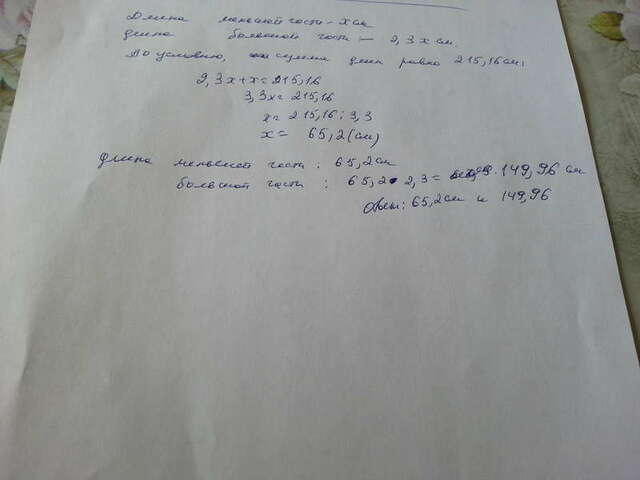 Длина меньшей части - x см
длина большей части - 2,3x см.
По условию, сумма длин равно 215,16 см.
2,3x+x=215,16
3,3x=215,16
x=215,16:3,3
x= 65,2(см)
Длина меньшей части: 65,2см
большей части: 65,2·2,3= 149,96 см
Ответ: 65,2см и 149,96